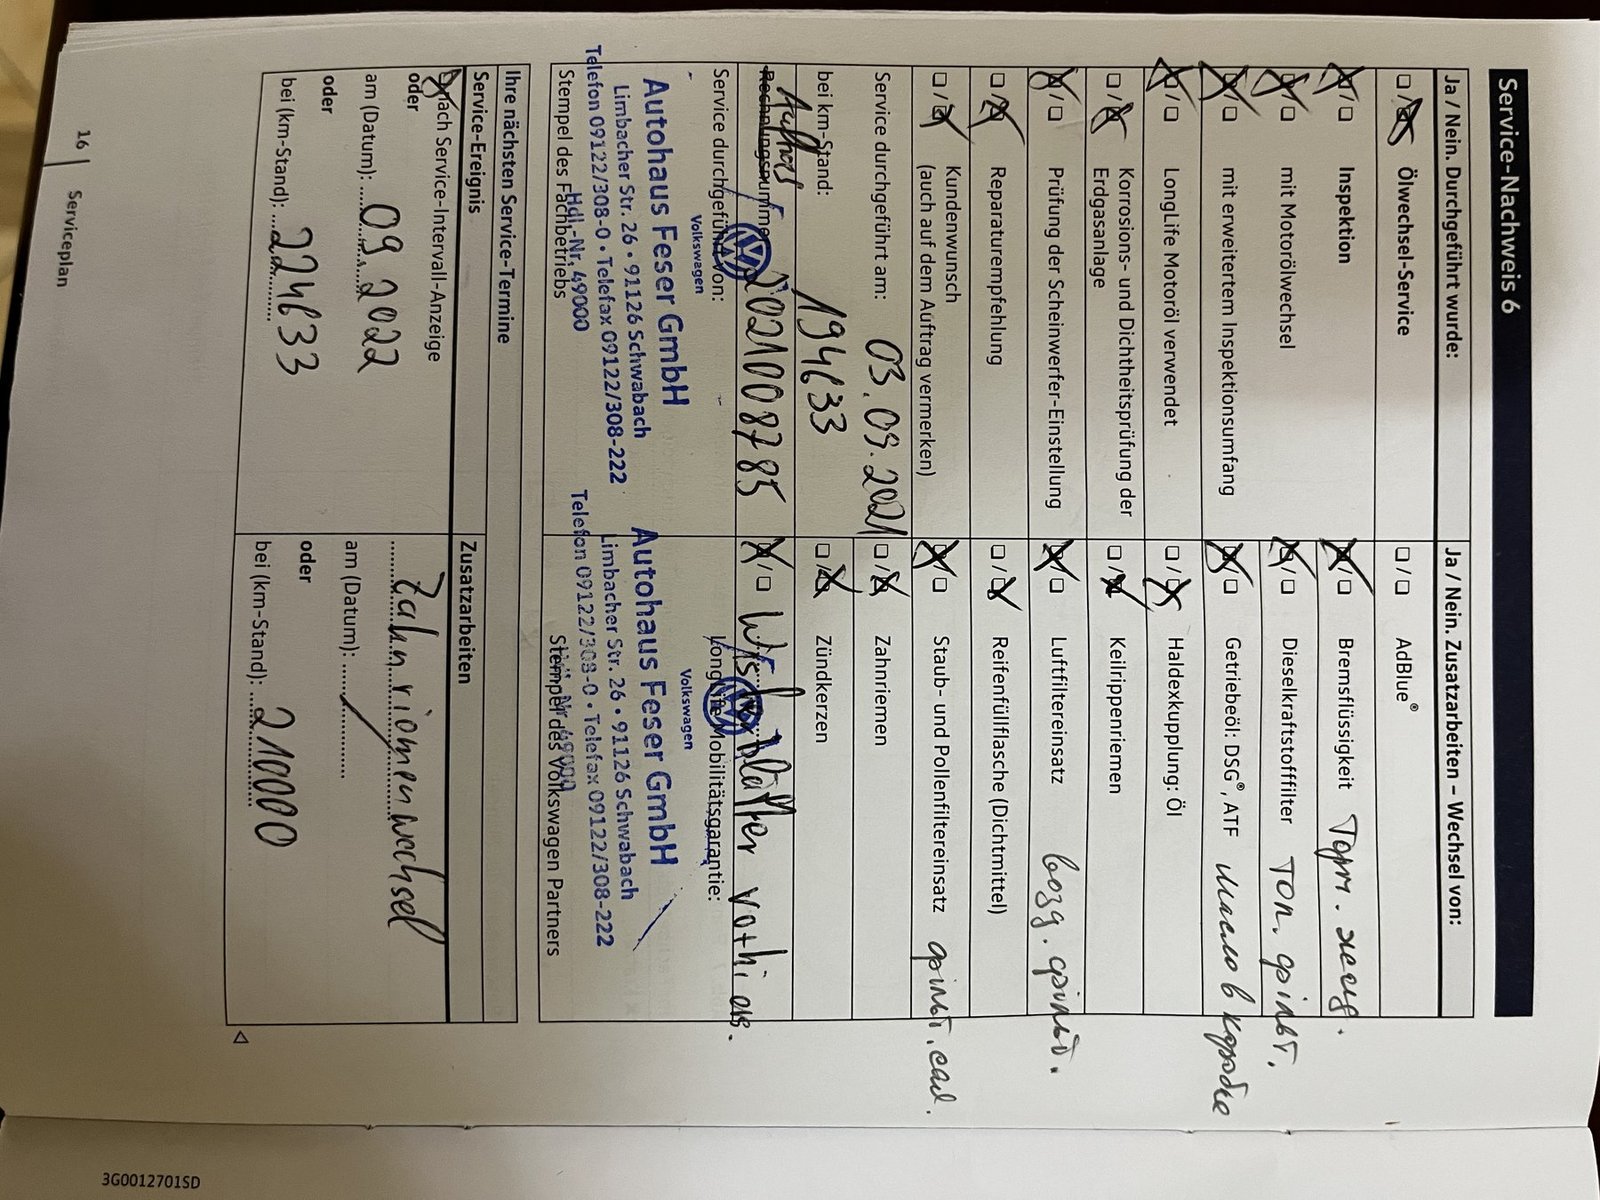 Service-Nachweis 6
Ja / Nein. Durchgeführt wurde:
Ölwechsel-Service
Inspektion
mit Motorölwechsel
mit erweitertem Inspektionsumfang
LongLife Motoröl verwendet
Korrosions- und Dichtheitsprüfung der
Erdgasanlage
Prüfung der Scheinwerfer-Einstellung
Reparaturempfehlung
Kundenwunsch
(auch auf dem Auftrag vermerken)
Service durchgeführt am: 03.09.2021
bei km-Stand: 194633
Rechnungsnummer 2021008785
Service durchgeführt von:
Volkswagen
Autohaus Feser GmbH
Limbacher Str. 26 • 91126 Schwabach
Telefon 09122/308-0 • Telefax 09122/308-222
Hdl.-Nr. 49000
Stempel des Fachbetriebs
Ja / Nein. Zusatzarbeiten – Wechsel von:
AdBlue®
Bremsflüssigkeit Торм. жидк.
Dieselkraftstofffilter Топ. фильт.
Getriebeöl: DSG®, ATF Масло в коробке
Haldexkupplung: Öl
Keilrippenriemen
Luftfiltereinsatz возд. фильт.
Reifenfüllflasche (Dichtmittel)
Staub- und Pollenfiltereinsatz фильт. сал.
Zahnriemen
Zündkerzen
Wischerblätter
LongLife Mobilitätsgarantie:
Volkswagen
Autohaus Feser GmbH
Limbacher Str. 26 • 91126 Schwabach
Telefon 09122/308-0 • Telefax 09122/308-222
Stempel des Volkswagen Partners
Ihre nächsten Service-Termine
Service-Ereignis
nach Service-Intervall-Anzeige
oder
am (Datum): 09.2022
oder
bei (km-Stand): 224633
Zusatzarbeiten
Zahnriemenwechsel
am (Datum):
oder
bei (km-Stand): 210000
16 | Serviceplan
3G0012701SD